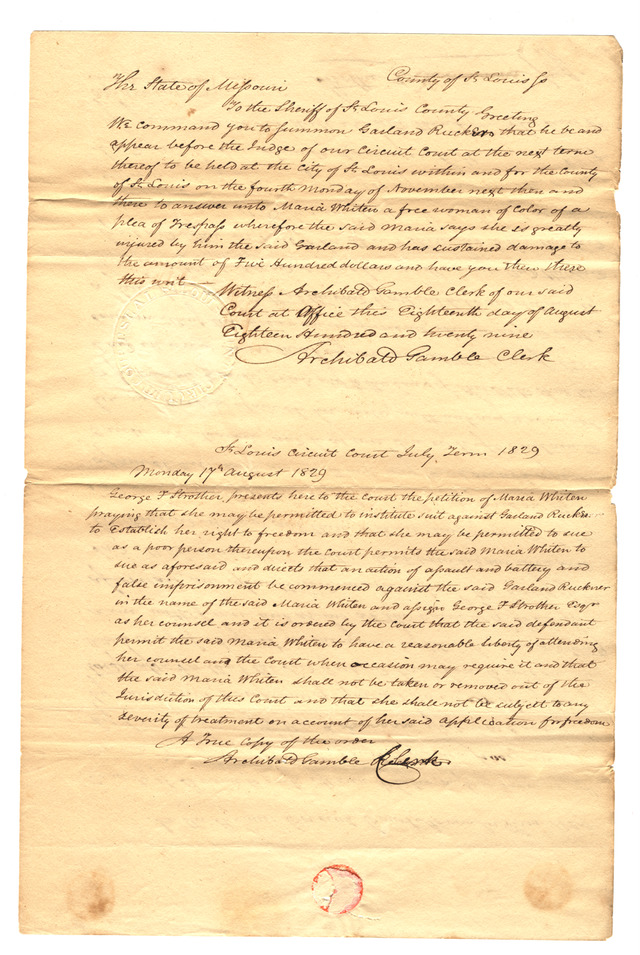 The State of Missouri County of St Louis Ss
To the Sheriff of St Louis County Greeting
We command you to summon Garland Rucker that he be and
appear before the Judge of our Circuit Court at the next term
thereof to be held at the City of St Louis within and for the County
of St Louis on the fourth Monday of November next then and
there to answer unto Maria Whiten a free woman of Color of a
plea of Trespass wherefore the said Maria says she is greatly
injured by him the said Garland and has sustained damage to
the amount of Five Hundred dollars and have you then there
this writ
Witness Archibald Gamble Clerk of our said
Court at Office this Eighteenth day of August
Eighteen Hundred and twenty nine
Archibald Gamble Clerk
St Louis Circuit Court July Term 1829
Monday 17th August 1829
George F Strother presents here to the Court the petition of Maria Whiten
praying that she may be permitted to institute suit against Garland Rucker
to Establish her right to freedom and that she may be permitted to sue
as a poor person thereupon the Court permits the said Maria Whiten to
sue as aforesaid and directs that an action of assault and battery and
false imprisonment be commenced against the said Garland Ruckner
in the name of the said Maria Whiten and assign George F Strother Esqr
as her counsel and it is ordered by the Court that the said defendant
permit the said Maria Whiten to have a reasonable liberty of attending
her counsel and the Court when occasion may require it and that
the said Maria Whiten shall not be taken or removed out of the
Jurisdiction of this Court and that she shall not be subject to any
severity of treatment on account of her said application for freedom
A True Copy of the order
Archibald Gamble Clerk